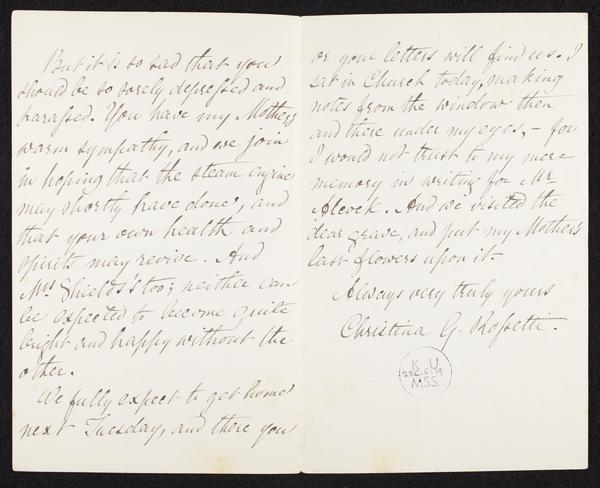 But it is so sad that you
should be so sorely depressed and
harassed. You have my Mother's
warm sympathy, and we join
in hoping that the steam engine
may shortly have done, and
that your own health and
spirits may revive. And
Mrs. Shields's too; neither can
be expected to become quite
bright and happy without the
other.
We fully expect to get home
next Tuesday, and there you
or your letters will find us. I
sat in Church today, making
notes from the window then
and there under my eyes, – for
I would not trust to my mere
memory in writing for Mr
Alcock. And we visited the
dear grave, and put my Mother's
last flowers upon it –
Always very truly yours
Christina G. Rossetti.
K U
MSS.